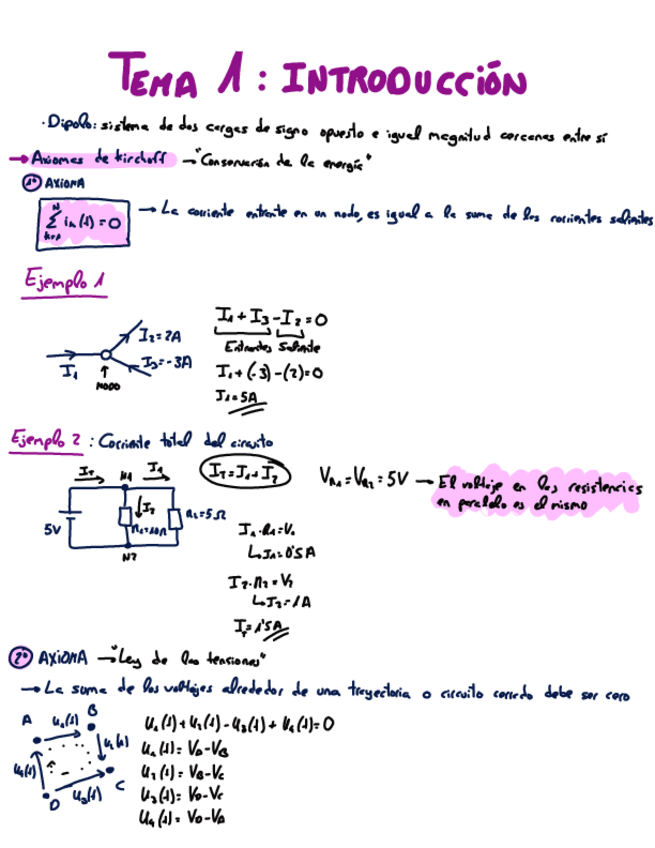 TEMA 1: INTRODUCCIÓN
· Dipolo: sistema de dos cargas de signo opuesto e igual magnitud cercanas entre sí
→ Axiomas de kirchoff → "Conservación de la energía"
1º AXIOMA
N
Σ in(t) = 0 → La corriente entrante en un nodo, es igual a la suma de las corrientes salientes
Ejemplo 1
I1 + I3 - I2 = 0
Entrantes Saliente
I2 = 2A
I1 I3 = -3A
NODO
I1 + (-3) - (2) = 0
I1 = 5A
Ejemplo 2: Corriente total del circuito
IT N1 I1 IT = I1 + I2 VR1 = VR2 = 5V → El voltaje en las resistencias
en paralelo es el mismo
5V I2 R1 = 10Ω R2 = 5Ω
N2
I1 · R1 = V1
↳ I1 = 0'5A
I2 · R2 = V2
↳ I2 = 1A
IT = 1'5A
2º AXIOMA → "Ley de las tensiones"
→ La suma de los voltajes alrededor de una trayectoria o circuito cerrado debe ser cero
A u1(t) B
u2(t)
u4(t) C
D u3(t)
u1(t) + u2(t) - u3(t) + u4(t) = 0
u1(t) = VA - VB
u2(t) = VB - VC
u3(t) = VD - VC
u4(t) = VD - VA